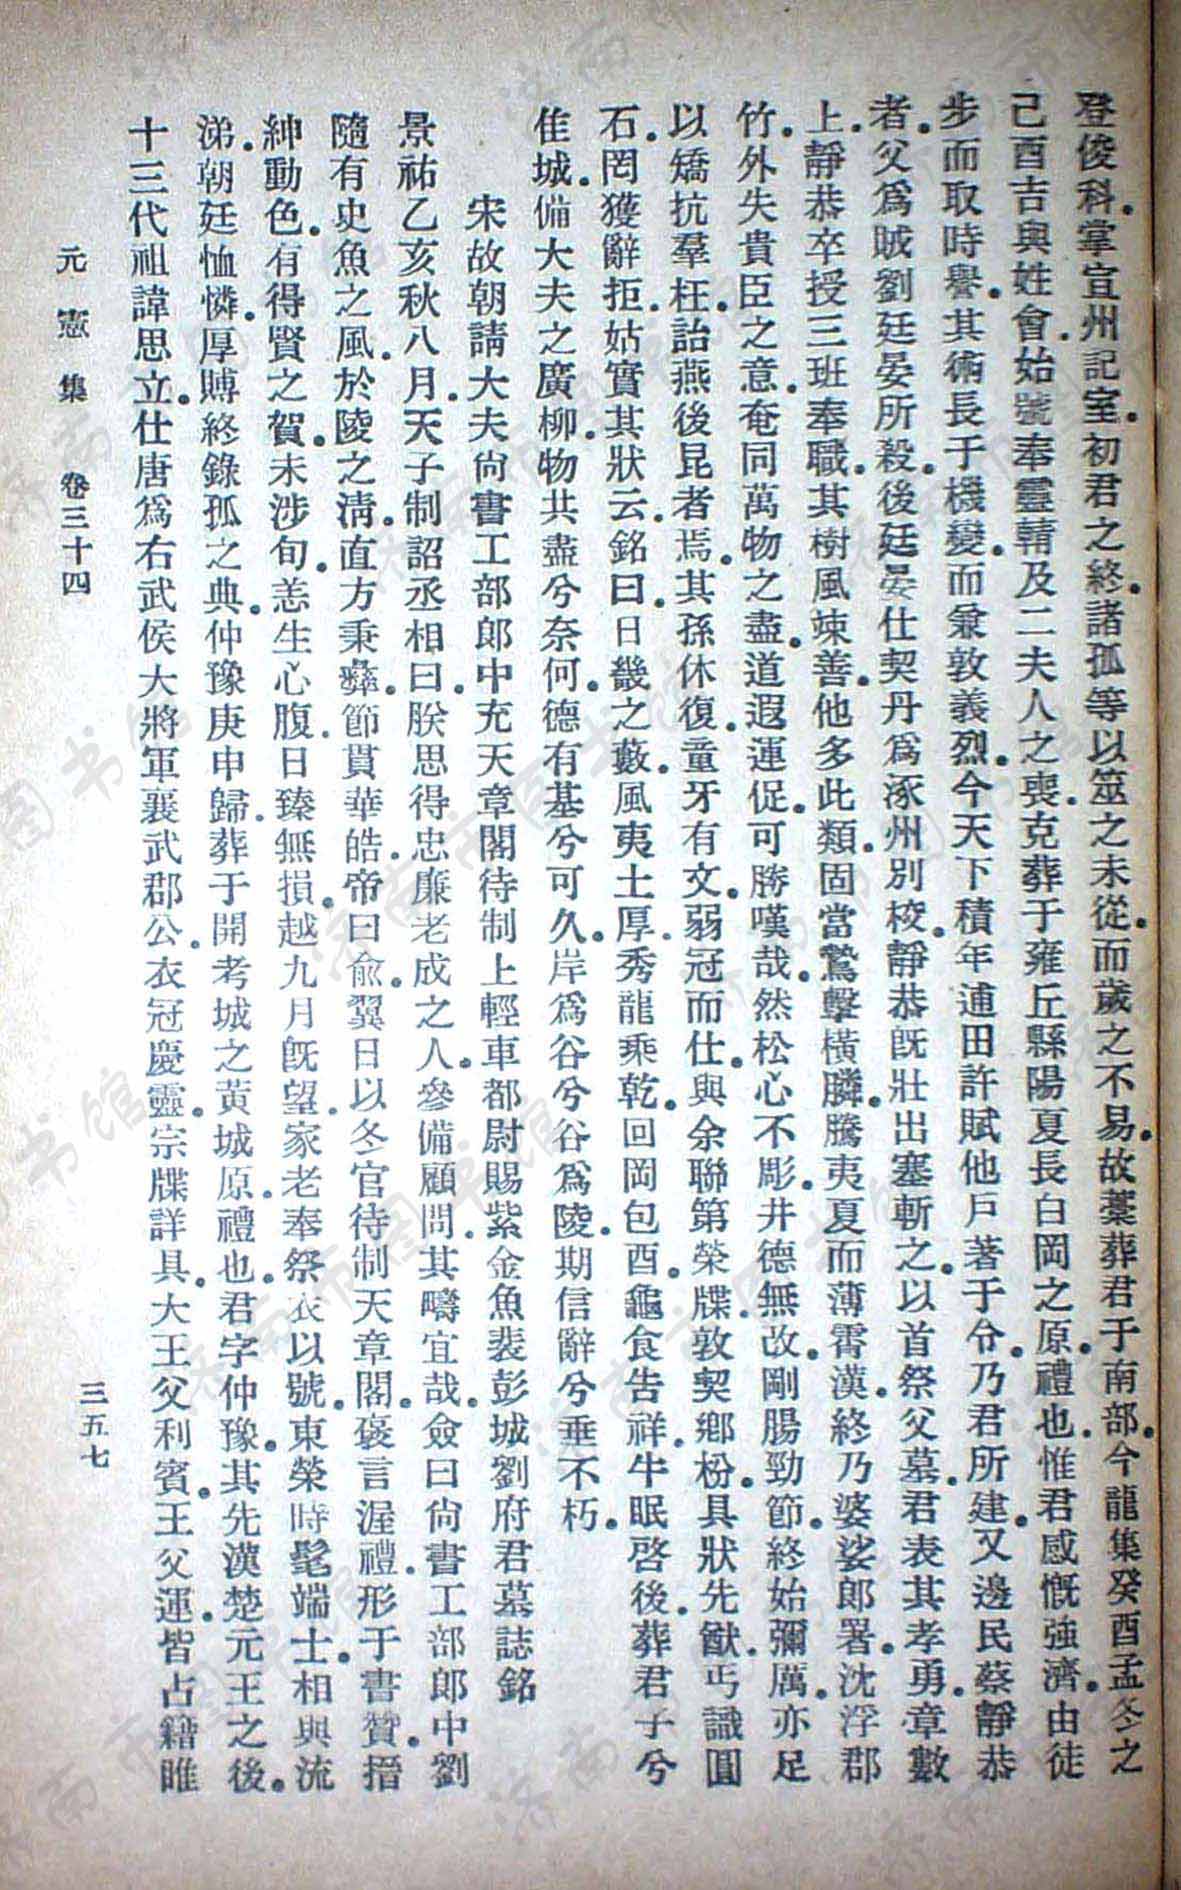 登俊科。掌宣州記室。初君之終。諸孤等以筮之未從。而歲之不易。故藁葬君于南部。今龍集癸酉孟冬之
己酉吉。與姓會。始號奉靈轜及二夫人之喪。克葬于雍丘縣陽夏長白岡之原。禮也。惟君感慨強濟。由徒
步而取時譽。其術長于機變。而兼敦義烈。今天下積年逋田。許賦他戶。著于令。乃君所建。又邊民蔡靜恭
者。父爲賊劉廷晏所殺。後廷晏仕契丹爲涿州別校。靜恭既壯。出塞斬之。以首祭父墓。君表其孝勇。章數
上。靜恭卒授三班奉職。其樹風竦善。他多此類。固當鷙擊橫驎。騰夷夏而薄霄漢。終乃婆娑郎署。沈浮郡
竹。外失貴臣之意。奄同萬物之盡。道遐運促。可勝嘆哉。然松心不彫。井德無改。剛腸勁節。終始彌厲。亦足
以矯抗羣枉。詒燕後昆者焉。其孫休復。童牙有文。弱冠而仕。與余聯第榮牒。敦契鄉枌。具狀先猷。丐識圓
石。罔獲辭拒。姑實其狀云。銘曰。日畿之藪。風夷土厚。秀龍乘乾。回岡包酉。龜食告祥。牛眠啓後。葬君子兮
佳城。備大夫之廣柳。物共盡兮奈何。德有基兮可久。岸爲谷兮谷爲陵。期信辭兮垂不朽。
宋故朝請大夫尚書工部郎中充天章閣待制上輕車都尉賜紫金魚袋彭城劉府君墓誌銘
景祐乙亥秋八月。天子制詔丞相曰。朕思得忠廉老成之人。參備顧問。其疇宜哉。僉曰尚書工部郎中劉
隨有史魚之風。於陵之清。直方秉彝。節貫華皓。帝曰俞。翼日以冬官待制天章閣。褒言渥禮。形于書贊。搢
紳動色。有得賢之賀。未涉旬。恙生心腹。日臻無損。越九月既望。家老奉祭衣以號。東榮時髦端士。相與流
涕。朝廷恤憐。厚賻終錄孤之典。仲豫庚申歸。葬于開考城之黃城原。禮也。君字仲豫。其先漢楚元王之後。
十三代祖諱思立。仕唐爲右武侯大將軍襄武郡公。衣冠慶靈。宗牒詳具。大王父利賓。王父運。皆占籍睢
元憲集 卷三十四
三五七